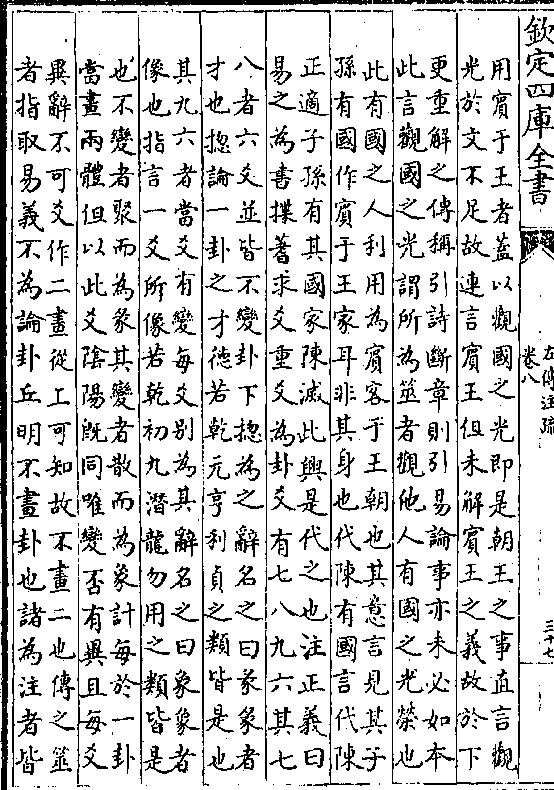 欽定四庫全書
卷八
用賓于王者蓋以觀國之光即是朝王之事直言觀
光於文不足故連言賓王但未解賓王之義故於下
更重解之傳稱引詩斷章則引易論事亦未必如本
此言觀國之光謂所為筮者觀他人有國之光榮也
此有國之人利用為賓客于王朝也其意言見其子
孫有國作賓于王家耳非其身也代陳有國言代陳
正適子孫有其國家陳滅此興是代之也注正義曰
易之為書揲蓍求爻重爻為卦爻有七八九六其七
八者六爻並皆不變卦下揔為之辭名之曰彖彖者
才也揔論一卦之才德若乾元亨利貞之類皆是也
其九六者當爻有變每爻别為其辭名之曰象象者
像也指言一爻所像若乾初九潛龍勿用之類皆是
也不變者聚而為彖其變者散而為象計每於一卦
當畫兩體但以此爻陰陽既同唯變否有異且每爻
異辭不可爻作二畫從上可知故不畫二也傳之筮
者指取易義不為論卦丘明不畫卦也諸為注者皆